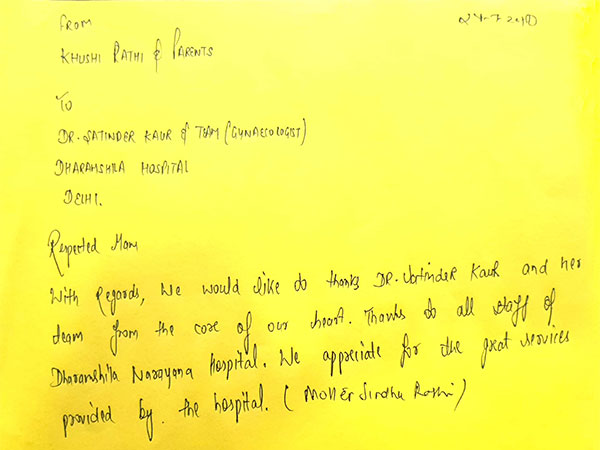 From
24-7-2010
KHUSHI RATHI & PARENTS
To
DR. SATINDER KAUR & TEAM (GYNAECOLOGIST)
DHARAMSHILA HOSPITAL
DELHI.
Respected Mam
With Regards, We would like to thanks DR. Satinder Kaur and her
team from the core of our heart. Thanks to all staff of
Dharamshila Narayana Hospital. We appreciate for the great services
provided by the hospital. (Mother Sindhu Rathi)